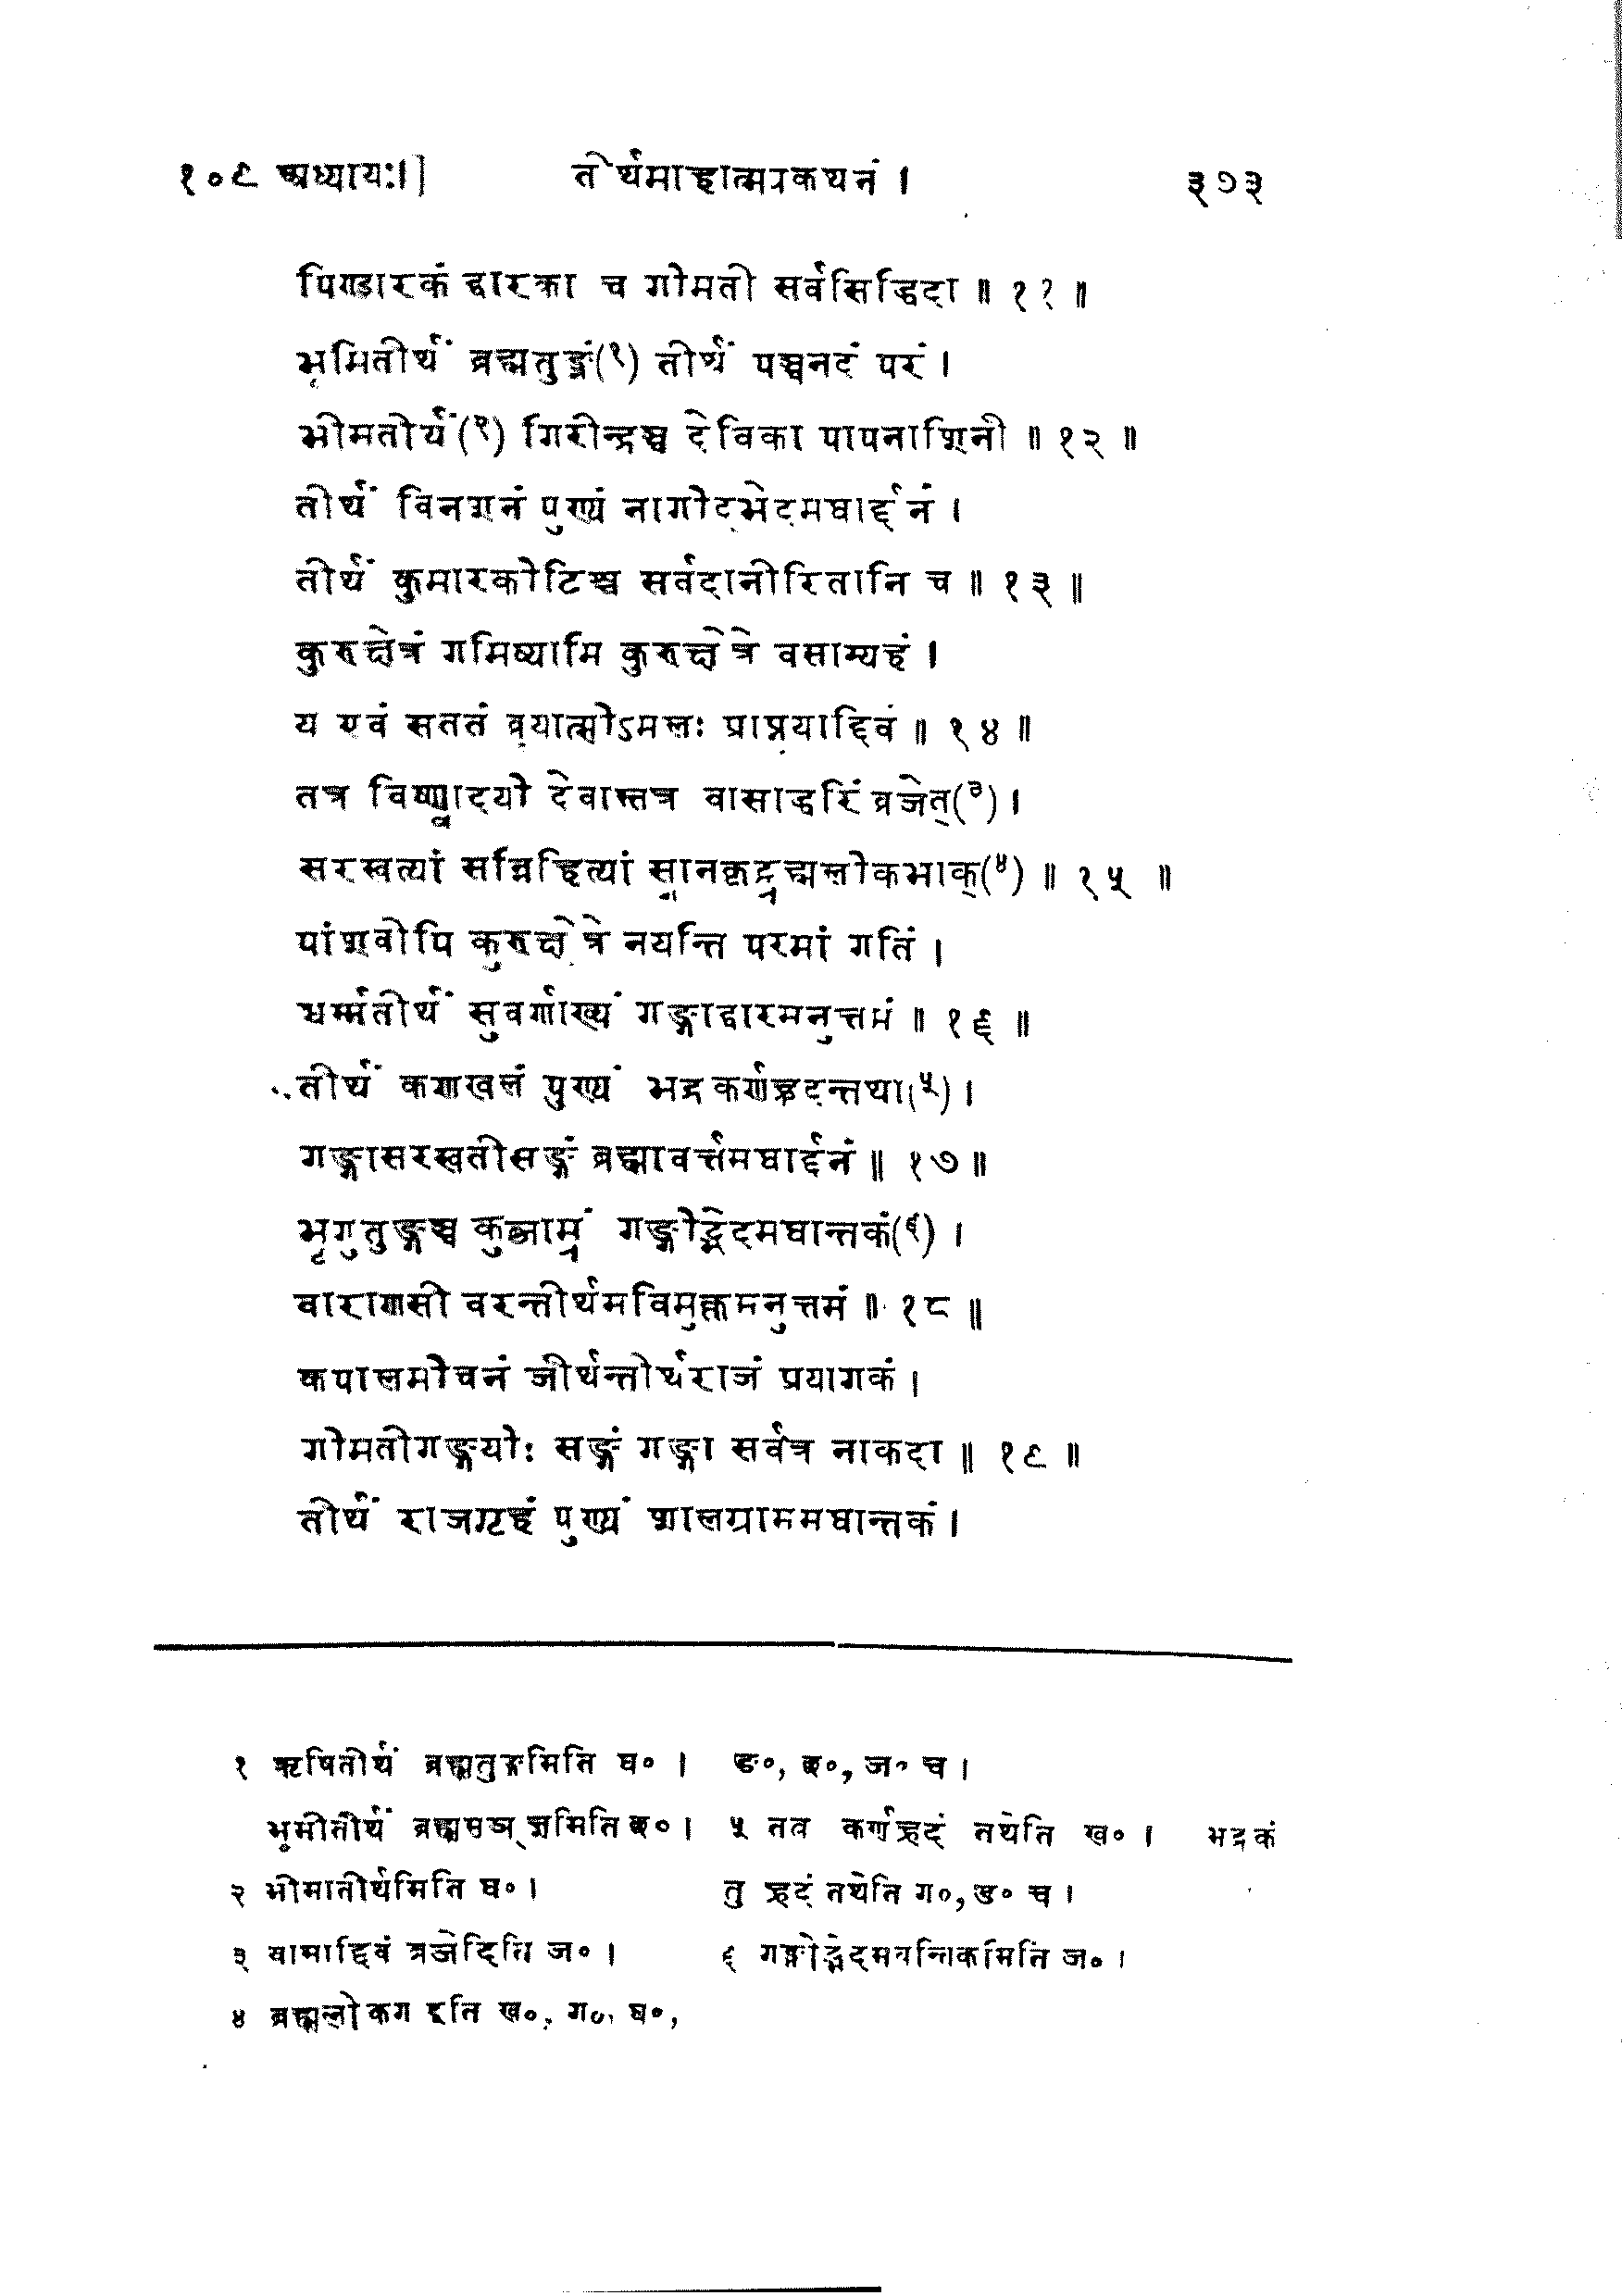 १०९ अध्यायः।] तीर्थमाहात्म्यकथनं । ३७३
पिण्डारकं द्वारका च गोमती सर्वसिद्धिदा ॥ ११ ॥
भूमितीर्थं ब्रह्मतुङ्गं(१) तीर्थं पञ्चनदं परं ।
भीमतीर्थं(२) गिरीन्द्रञ्च देविका पापनाशिनी ॥ १२ ॥
तीर्थं विनशनं पुण्यं नागोद्भेदमघार्द्दनं ।
तीर्थं कुमारकोटिश्च सर्वदानीरितानि च ॥ १३ ॥
कुरुक्षेत्रं गमिष्यामि कुरुक्षेत्रे वसाम्यहं ।
य एवं सततं ब्रूयात्सोऽमलः प्राप्नुयाद्दिवं ॥ १४ ॥
तत्र विष्ण्वादयो देवास्तत्र वासाद्धरिं व्रजेत्(३) ।
सरस्वत्यां सन्निहित्यां स्नानकृद्ब्रह्मलोकभाक्(४) ॥ १५ ॥
पांशवोपि कुरुक्षेत्रे नयन्ति परमां गतिं ।
धर्म्मतीर्थं सुवर्णाख्यं गङ्गाद्वारमनुत्तमं ॥ १६ ॥
तीर्थं कणखलं पुण्यं भद्रकर्णह्रदन्तथा(५) ।
गङ्गासरस्वतीसङ्गं ब्रह्मावर्त्तमघार्द्दनं ॥ १७ ॥
भृगुतुङ्गञ्च कुब्जाम्रं गङ्गोद्भेदमघान्तकं(६) ।
वाराणसी वरन्तीर्थमविमुक्तमनुत्तमं ॥ १८ ॥
कपालमोचनं तीर्थन्तीर्थराजं प्रयागकं ।
गोमतीगङ्गयोः सङ्गं गङ्गा सर्वत्र नाकदा ॥ १९ ॥
तीर्थं राजगृहं पुण्यं शालग्राममघान्तकं ।
१ ऋषितीर्थं ब्रह्मतुङ्गमिति घ० ।
भूमीतीर्थं ब्रह्मसञ्ज्ञमिति छ० ।
२ भीमातीर्थमिति घ० ।
३ वामाद्दिवं व्रजेदिति ज० ।
४ ब्रह्मलोकग इति ख०, ग०, घ०,
ङ०, छ०, ज० च ।
५ तत्र कर्णह्रदं तथेति ख० । भद्रकं
तु ह्रदं तथेति ग०, ङ० च ।
६ गङ्गोद्भेदमवन्तिकमिति ज० ।